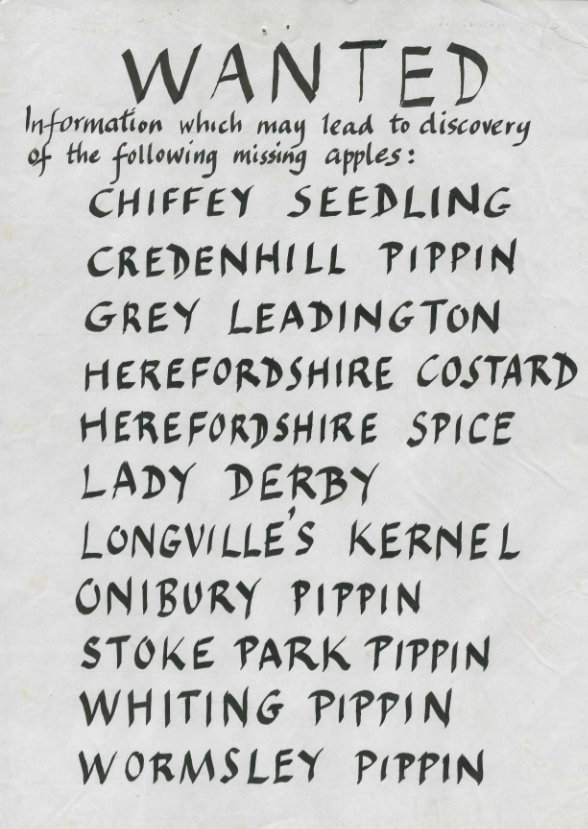 WANTED
Information which may lead to discovery
of the following missing apples:
CHIFFEY SEEDLING
CREDENHILL PIPPIN
GREY LEADINGTON
HEREFORDSHIRE COSTARD
HEREFORDSHIRE SPICE
LADY DERBY
LONGVILLE'S KERNEL
ONIBURY PIPPIN
STOKE PARK PIPPIN
WHITING PIPPIN
WORMSLEY PIPPIN